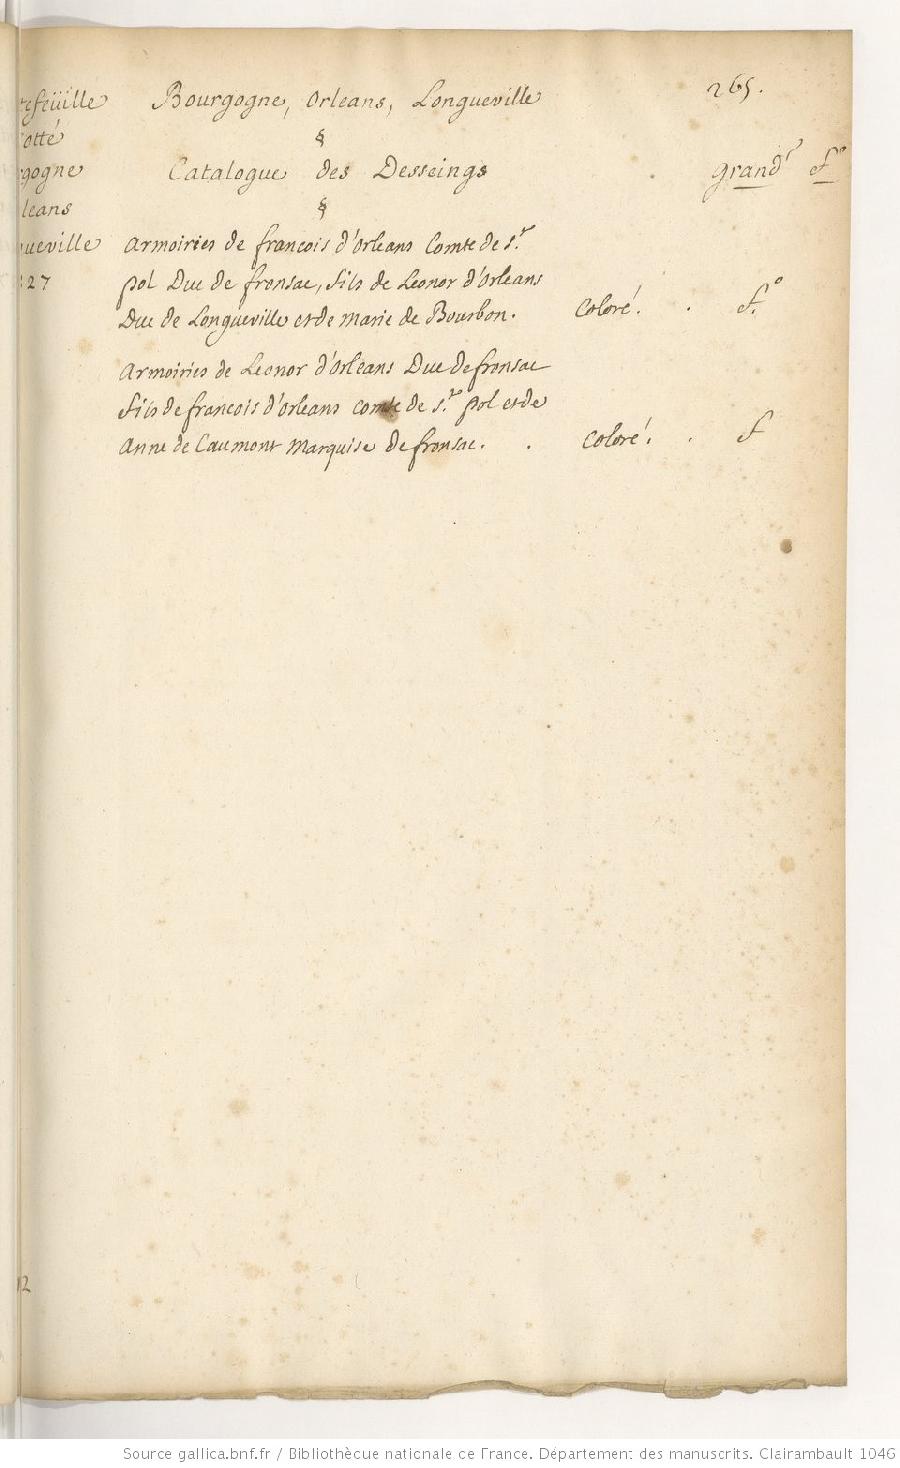 265.
refeüille
otté
rgogne
leans
ueville
227
Bourgogne, Orleans, Longueville
§
Catalogue des Desseings
grandr fo
§
Armoiries de francois d'Orleans Comte de s.t
pol Duc de fronsac, fils de Leonor d'Orleans
Duc de Longueville et de Marie de Bourbon. Coloré. . f.o
Armoiries de Leonor d'Orleans Duc de fronsac
fils de francois d'Orleans comte de s.t pol et de
Anne de Caumont Marquise de fronsac. . Coloré. . f
12
Source gallica.bnf.fr / Bibliothèque nationale de France. Département des manuscrits. Clairambault 1046